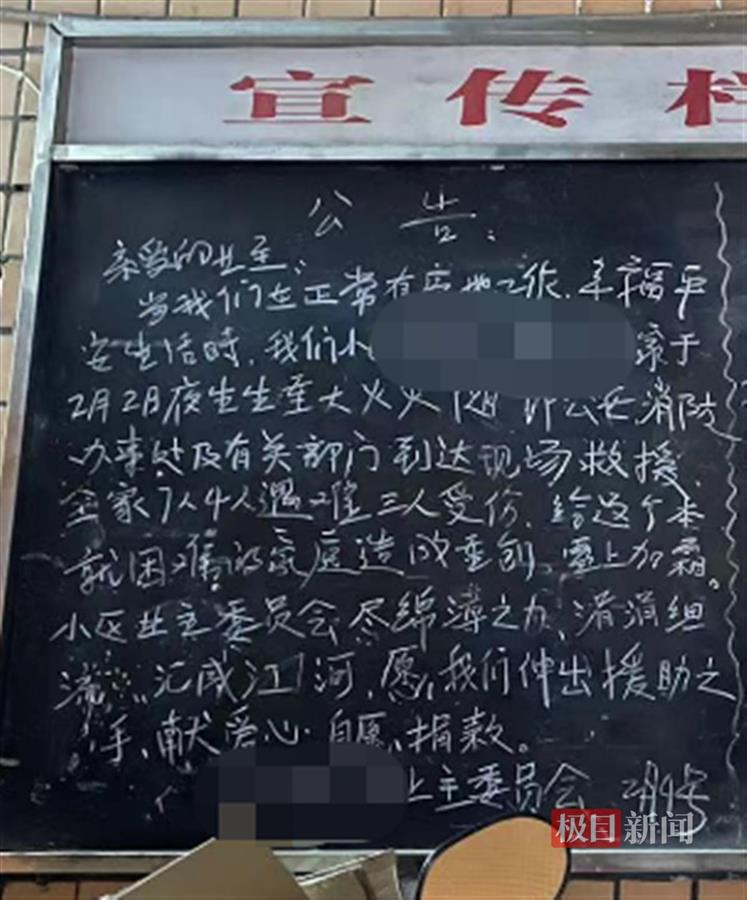 宣传栏
公告:
亲爱的业主:
当我们在正常有序地工作、幸福平
安生活时,我们小 家于
2月2日夜生生至大火火 公安消防
办事处及有关部门到达现场救援,
全家7人4人遇难三人受伤,给这个本
就困难的家庭造成重创,雪上加霜。
小区业主委员会尽绵薄之力、涓涓细
流,汇成江河,愿,我们伸出援助之
手、献爱心·自愿、捐款。
业主委员会 2月4号
极目新闻